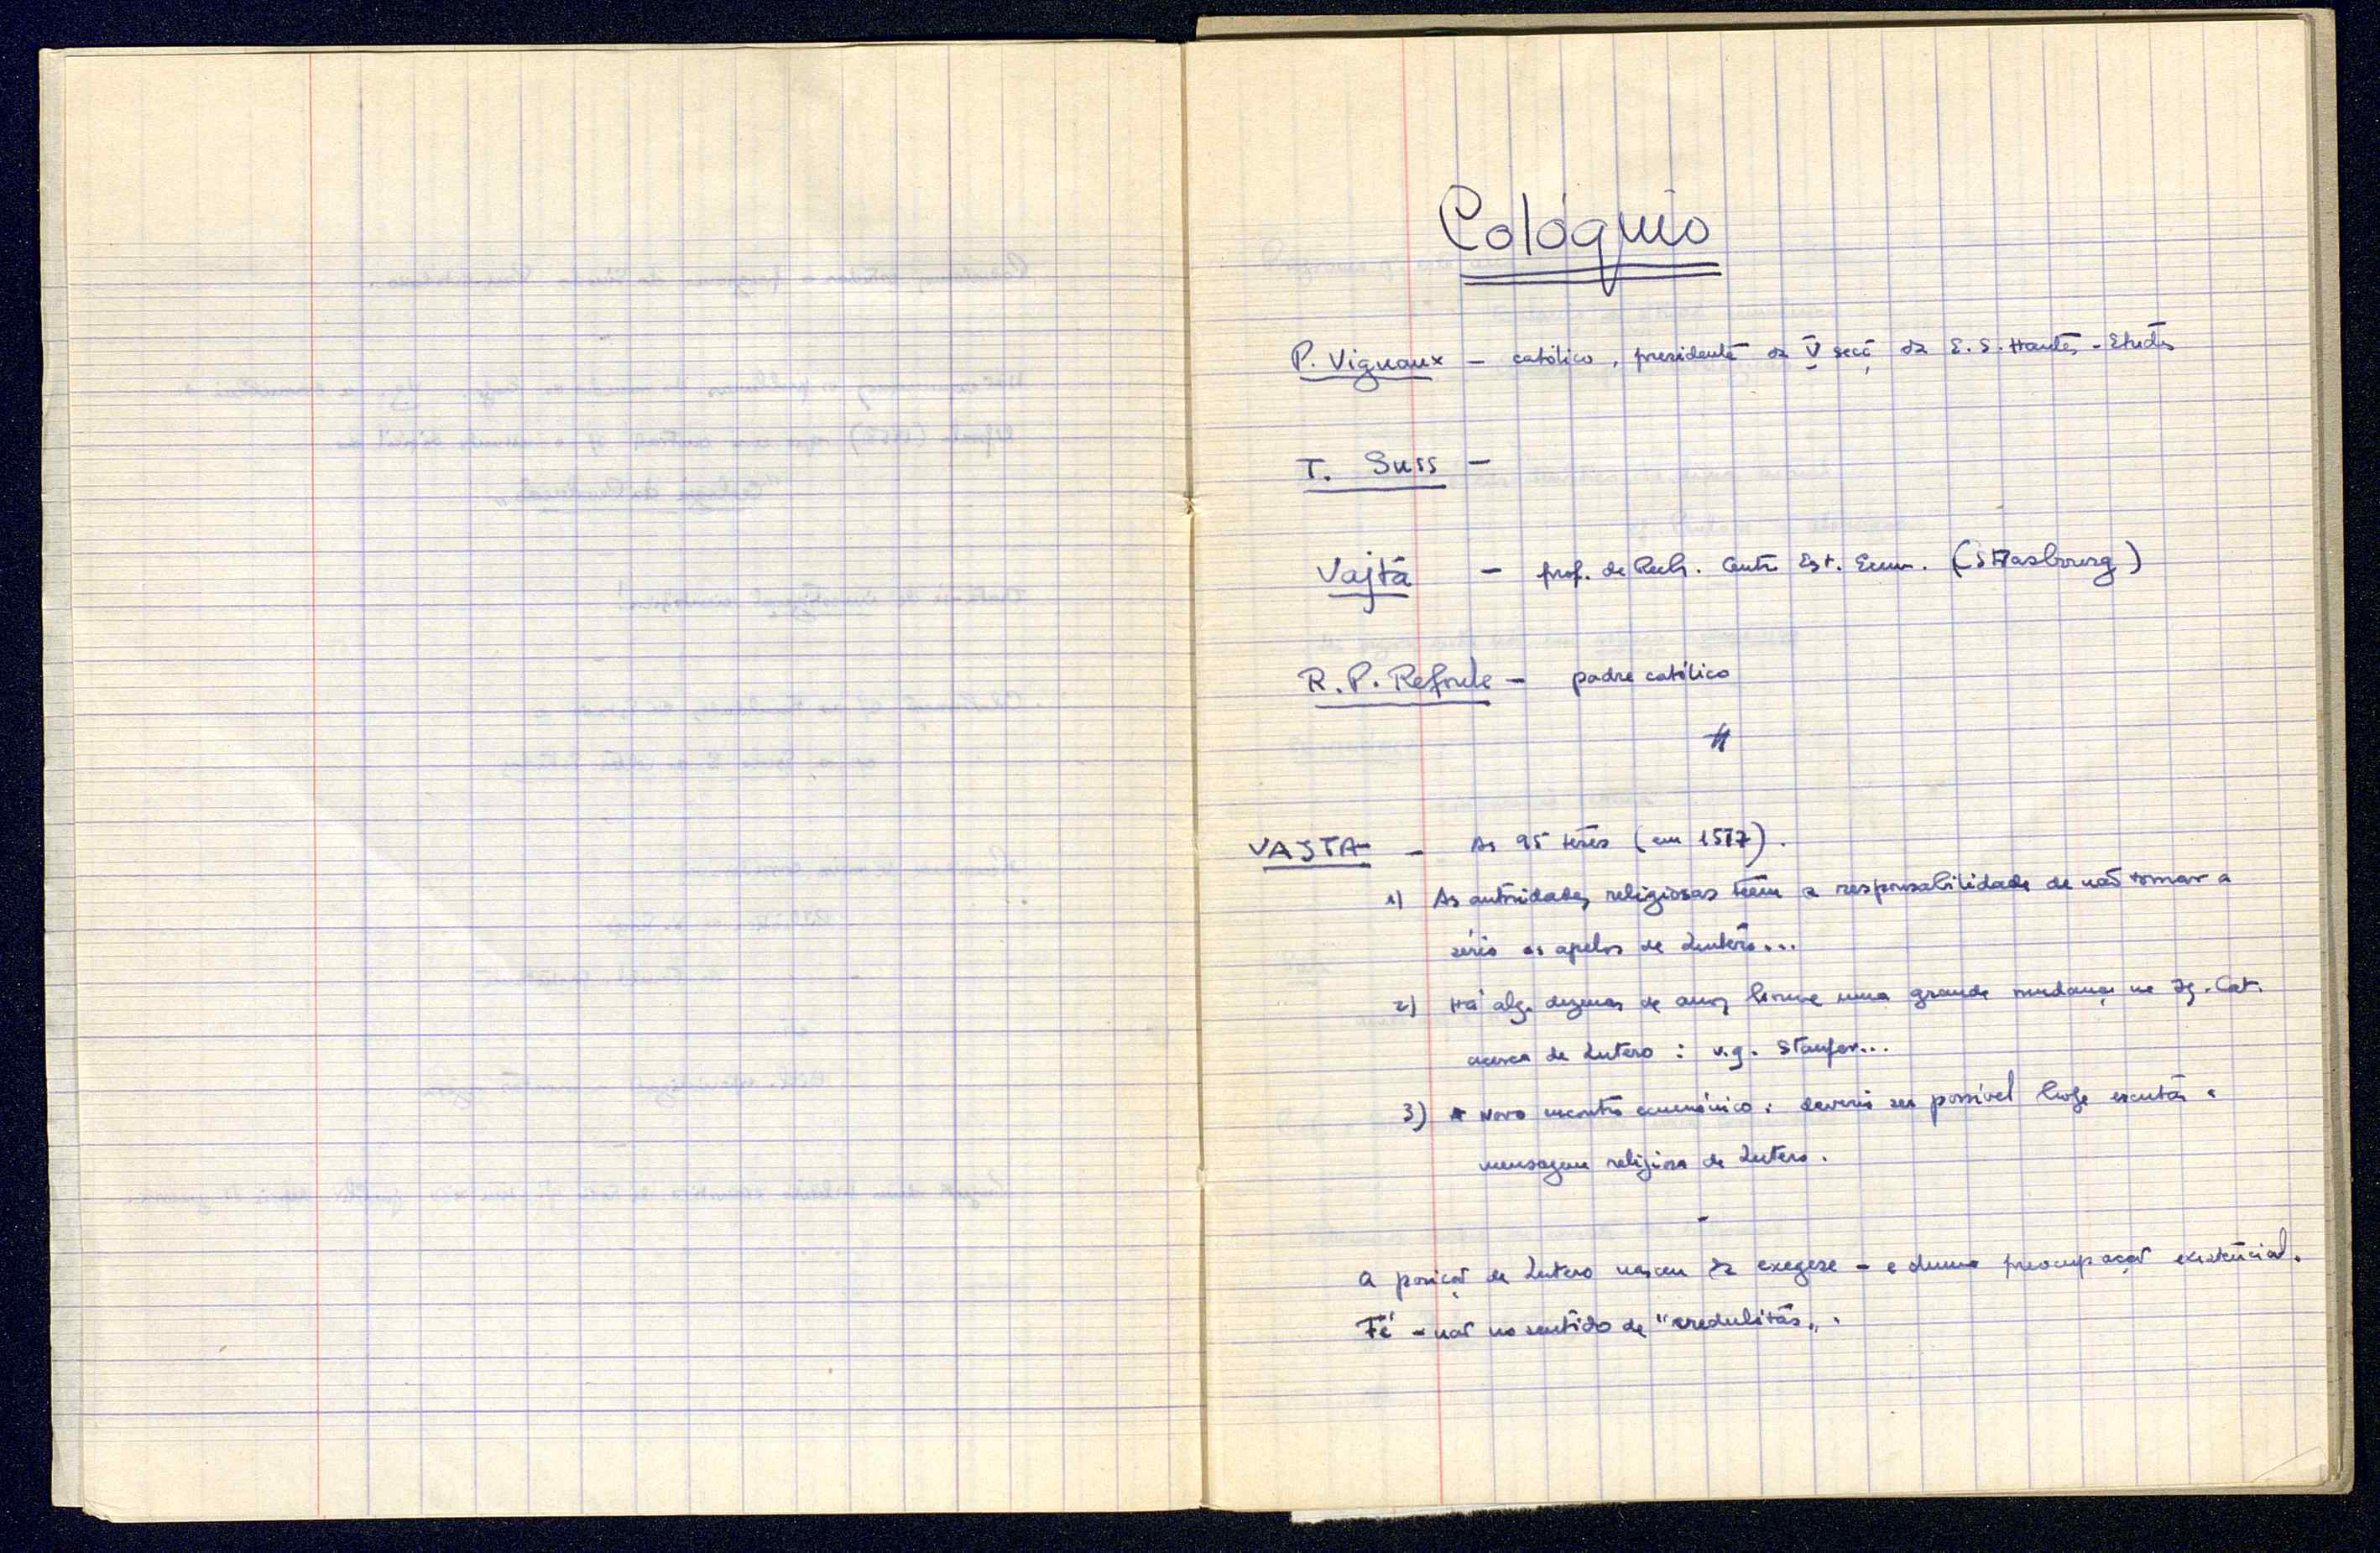 Colóquio
P. Vignaux – católico, presidente da V secç da E. S. Hautes-Etudes
T. Suss –
Vajta – prof. de Rech. Centre Est. Ecum. (Strasbourg)
R. P. Refoule – padre católico
VAJTA – As 95 teses (em 1517).
1) As autoridades religiosas teem a responsabilidade de não tomar a
sério os apelos de Lutero...
2) Há alg. dezenas de anos houve uma grande mudança na Ig. Cat.
acerca de Lutero : v.g. Staufer...
3) Novo encontro ecuménico : deveria ser possível hoje escutar a
mensagem religiosa de Lutero.
-
A posição de Lutero nasceu da exegese – e duma preocupação existencial.
Fé – não no sentido de "credulitas".